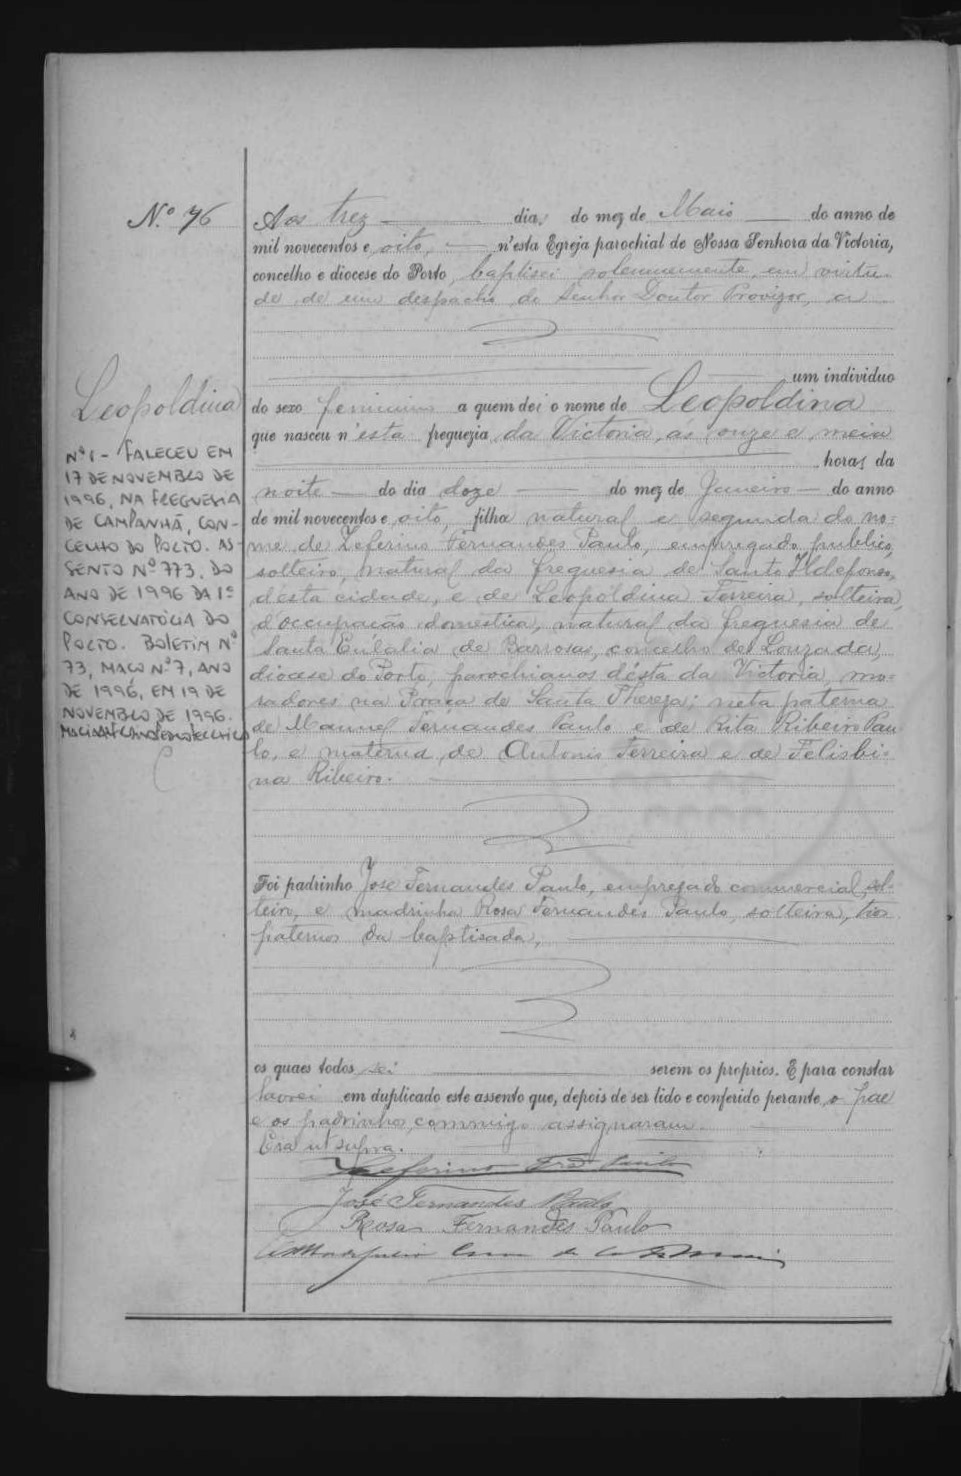 Nº 76
Aos trez dias do mez de Maio do anno de
mil novecentos e oito, n'esta Egreja parochial de Nossa Senhora da Victoria,
concelho e diocese do Porto, baptisei solemnemente, em virtu-
de de um despacho do Senhor Doutor Provizor, a
um individuo
Leopoldina
do sexo feminino a quem dei o nome de Leopoldina
que nasceu n'esta freguezia da Victoria, ás onze e meia
horas da
noite do dia doze do mez de Janeiro do anno
de mil novecentos e oito, filha natural e segunda do no-
me, de Zeferino Fernandes Paulo, empregado publico,
solteiro, natural da freguesia de Santo Ildefonso,
d'esta cidade, e de Leopoldina Ferreira, solteira,
d'occupação domestica, natural da freguesia de
Santa Eulalia de Barrosas, concelho de Louzada,
diocese do Porto, parochianos d'ésta da Victoria, mo-
radores na Praça de Santa Thereza; neta paterna
de Manuel Fernandes Paulo e de Rita Ribeiro Pau
lo, e materna, de Antonio Ferreira e de Felisbi-
na Ribeiro.
Nº1 - FALECEU EM
17 DE NOVEMBRO DE
1996, NA FREGUESIA
DE CAMPANHÃ, CON-
CELHO DO PORTO. AS-
SENTO Nº 773, DO
ANO DE 1996 DA 1ª
CONSERVATÓRIA DO
PORTO. BOLETIM Nº
73, MAÇO Nº 7, ANO
DE 1996, EM 19 DE
NOVEMBRO DE 1996.
Foi padrinho José Fernandes Paulo, empregado commercial, sol-
teiro, e madrinha Rosa Fernandes Paulo, solteira, tios
paternos da baptisada,
os quaes todos sei serem os proprios. E para constar
lavrei em duplicado este assento que, depois de ser lido e conferido perante o pae
e os padrinhos, commigo assignaram.
Era ut supra.
Zeferino Frz Paulo
José Fernandes Paulo
Rosa Fernandes Paulo